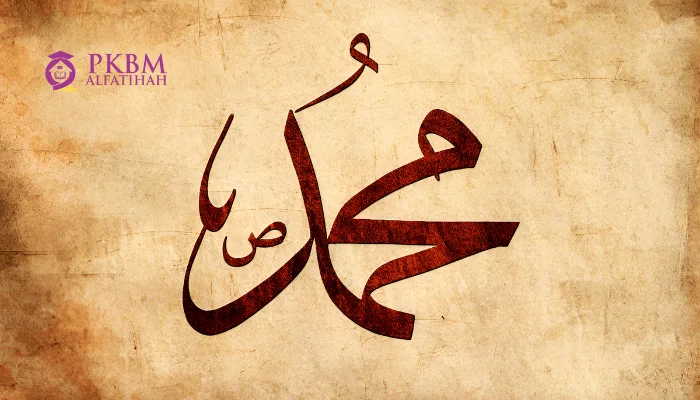 PKBM
ALFATIHAH
مُحمد
ص